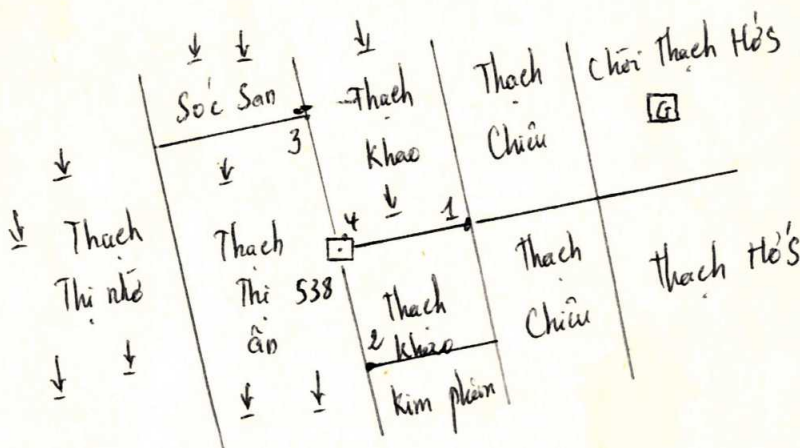 Sóc San
3
Thạch
Khao
Thạch
Chiêu
Chòi Thạch Hớs
G
Thạch
Thị nhớ
Thạch
Thị
ân
538
4
1
Thạch
Khao
2
Kim
Thạch
Chiêu
Thạch Hớs